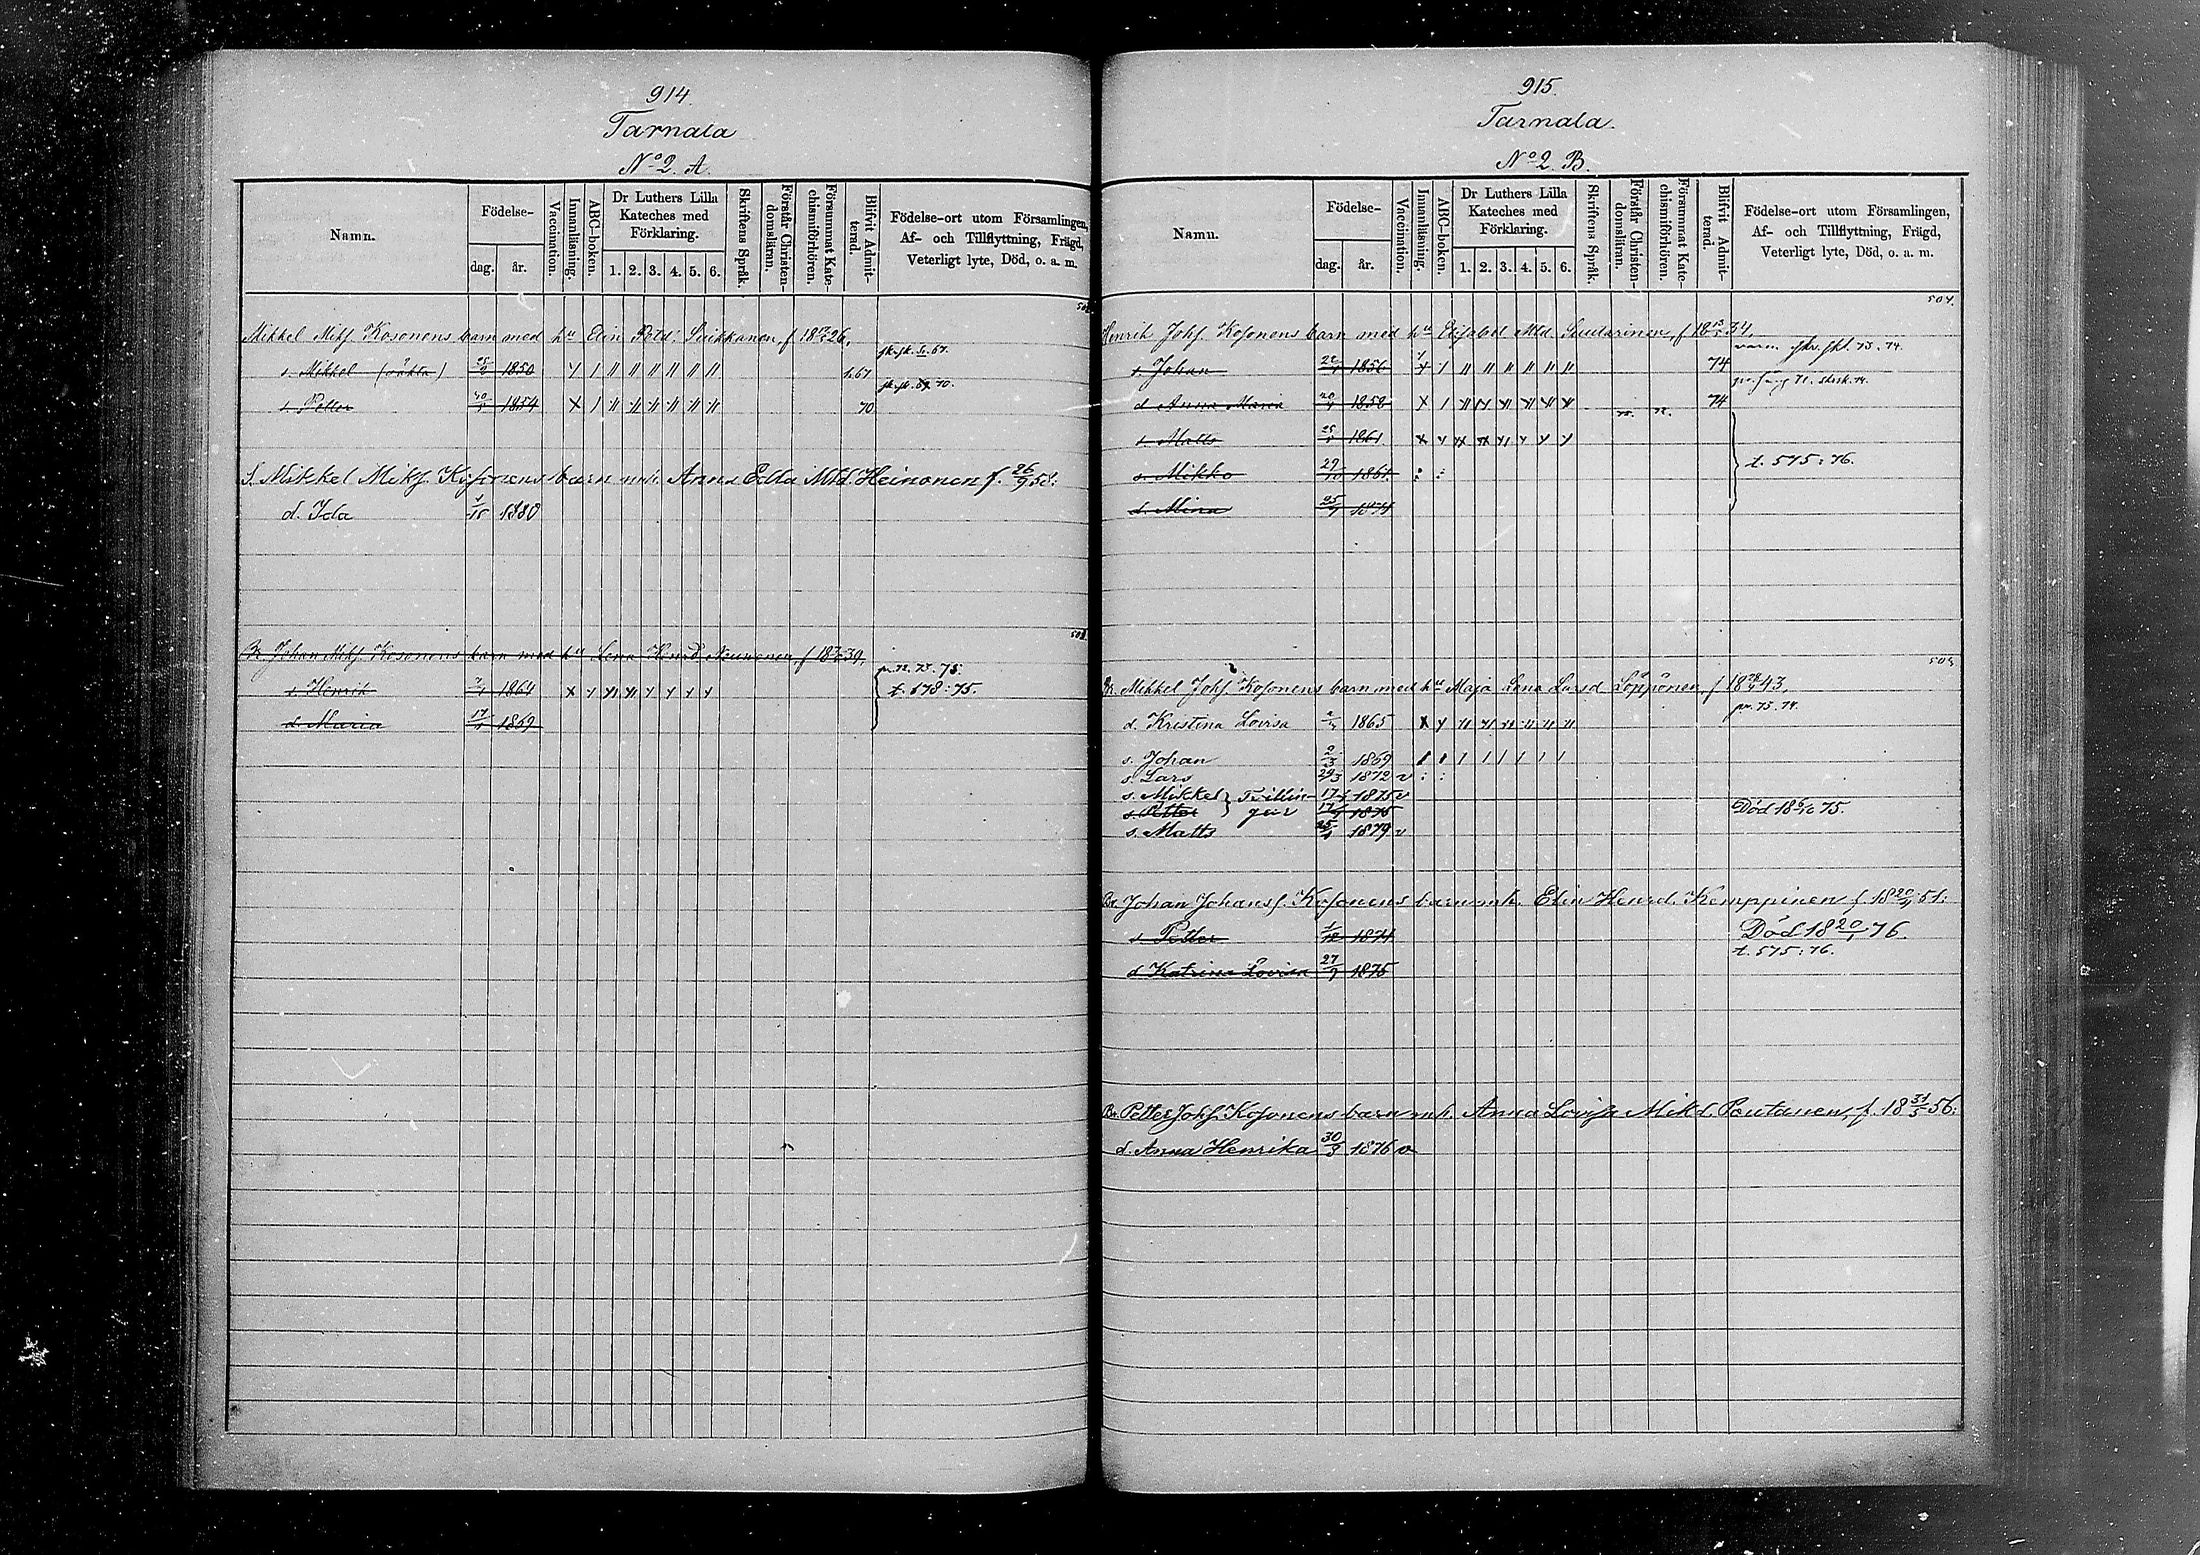 914.
Tarnala
No 2. A.
Namn.
Födelse-
dag.
år.
Vaccination.
Innanläsning.
ABC-boken.
Dr Luthers Lilla
Kateches med
Förklaring.
1. 2. 3. 4. 5. 6.
Skriftens Språk.
Förstår Christen-
domslärnn.
Försummat Kate-
chismiförhören.
Blifvit Admit-
terad.
Födelse-ort utom Församlingen,
Af- och Tillflyttning, Frägd,
Veterligt lyte, Död, o. a. m.
Mikkel Mikf. Kosonens barn med hu Elin Petd. f 18 26,
s. Mikkel 1850 67
s. Petter 1854 70
S. Mikkel Mikf. Kosonens barn Anna Edla Mtd. Heinonen f. 26/9 58:
d. Ida 1880
Br. Johan Mikf. Kosonens barn med hu Lena Henrd f 18 39,
s. Henrik 1864 t. 578:75.
d. Maria 17 1869
915.
Tarnala.
No 2. B.
Namn.
Födelse-
dag.
år.
Vaccination.
Innanläsning.
ABC-boken.
Dr Luthers Lilla
Kateches med
Förklaring.
1. 2. 3. 4. 5. 6.
Skriftens Språk.
Förstår Christen-
domslärnn.
Försummat Kate-
chismiförhören.
Blifvit Admit-
terad.
Födelse-ort utom Församlingen,
Af- och Tillflyttning, Frägd,
Veterligt lyte, Död, o. a. m.
504.
Henrik Johf. Kosonens barn med hu Elisabet Mtd. f 18 34,
s Johan 1856 74
d Anna Maria 1858 74
s. Matts 25 1861
s. Mikko 29/10 1867 t. 575:76.
d. Mina 25 1871
Br. Mikkel Johf. Kosonens barn med hu Maja Lena Larsd Löppönen, f 18 43,
pr. 73. 74.
d. Kristina Lovisa 1865
s. Johan 2/3 1869
s. Lars 29/3 1872 v
s. Mikkel } Tvillin- 17 1875 v
s. Petter } gar 17 1875 Död 18 6/10 75.
s. Matts 25 1879 v
Br. Johan Johansf. Kosonens barn mh. Elin Henrd. Kemppinen f. 18 20 51:
s Petter 1874 Död 18 20/1 76.
d Katrina Lovisa 27 1875 t. 575:76.
Br. Petter Johf. Kosonens barn mh. Anna Lovisa Mikd. Pontanen, f. 18 31 56:
d. Anna Henrika 30/3 1876 v